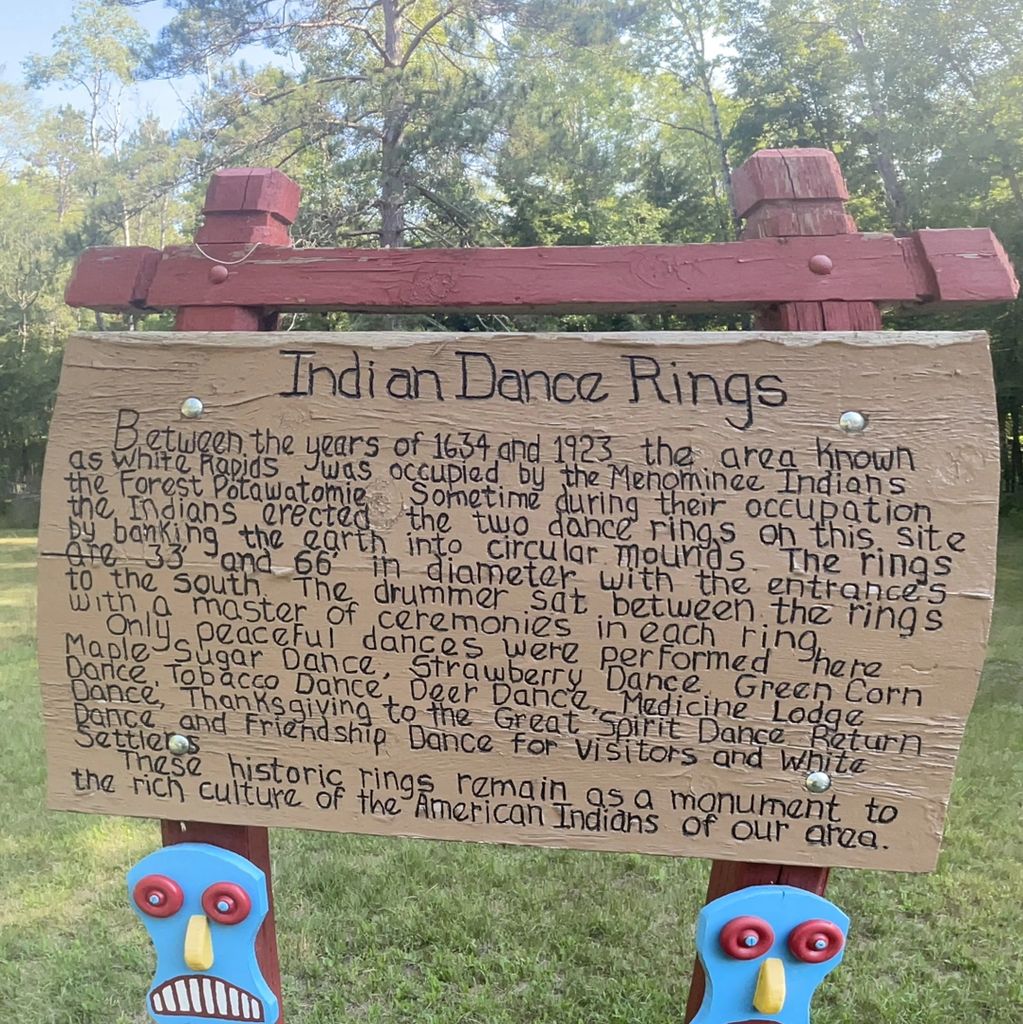 Indian Dance Rings
Between the years of 1634 and 1923 the area known
as White Rapids was occupied by the Menominee Indians
the Forest Potawatomie. Sometime during their occupation
the Indians erected the two dance rings on this site
by banking the earth into circular mounds. The rings
are 33' and 66' in diameter with the entrances
to the south. The drummer sat between the rings
with a master of ceremonies in each ring.
Only peaceful dances were performed here
Maple Sugar Dance, Strawberry Dance, Green Corn
Dance, Tobacco Dance, Deer Dance, Medicine Lodge
Dance, Thanksgiving to the Great Spirit Dance, Return
Dance and Friendship Dance for visitors and white
Settlers
These historic rings remain as a monument to
the rich culture of the American Indians of our area.